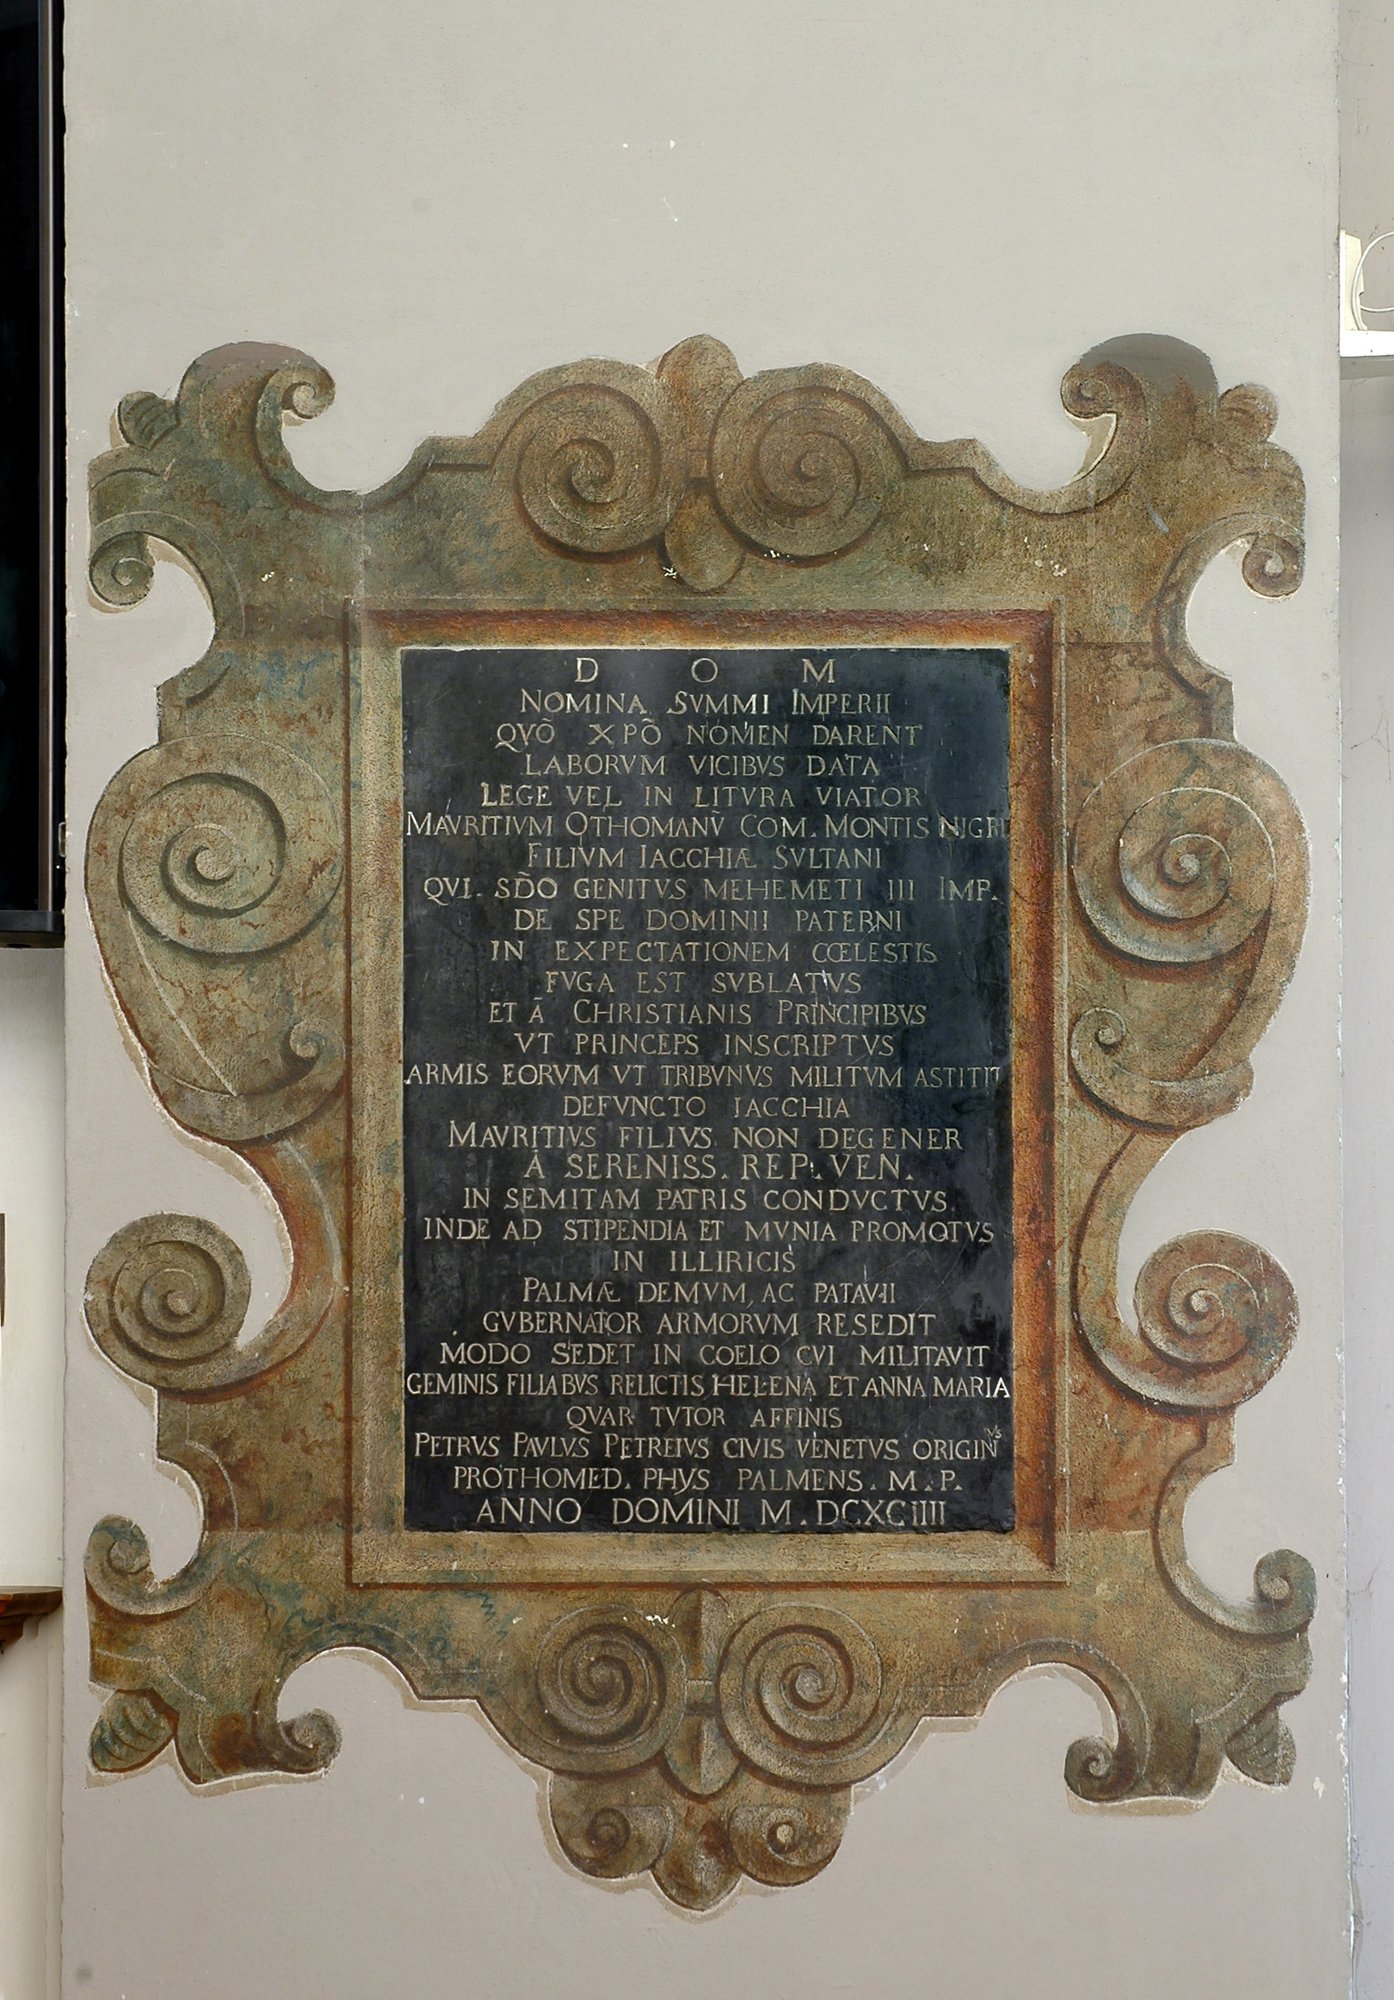 D O M
NOMINA SVMMI IMPERII
QVÕ XPÕ NOMEN DARENT
LABORVM VICIBVS DATA
LEGE VEL IN LITVRA VIATOR
MAVRITIVM OTHOMANV̄ COM. MONTIS NIGRI
FILIVM IACCHIÆ SVLTANI
QVI. SD̃O GENITVS MEHEMETI III IMP.
DE SPE DOMINII PATERNI
IN EXPECTATIONEM CŒLESTIS
FVGA EST SVBLATVS
ET Ã CHRISTIANIS PRINCIPIBVS
VT PRINCEPS INSCRIPTVS
ARMIS EORVM VT TRIBVNVS MILITVM ASTITIT
DEFVNCTO IACCHIA
MAVRITIVS FILIVS NON DEGENER
À SERENISS. REP. VEN.
IN SEMITAM PATRIS CONDVCTVS
INDE AD STIPENDIA ET MVNIA PROMOTVS
IN ILLIRICIS
PALMÆ DEMVM, AC PATAVII
GVBERNATOR ARMORVM RESEDIT
MODO SEDET IN COELO CVI MILITAVIT
GEMINIS FILIABVS RELICTIS HELENA ET ANNA MARIA
QVAR TVTOR AFFINIS
PETRVS PAVLVS PETREIVS CIVIS VENETVS ORIGINVS
PROTHOMED. PHYS PALMENS. M. P.
ANNO DOMINI M. DCXCIIII